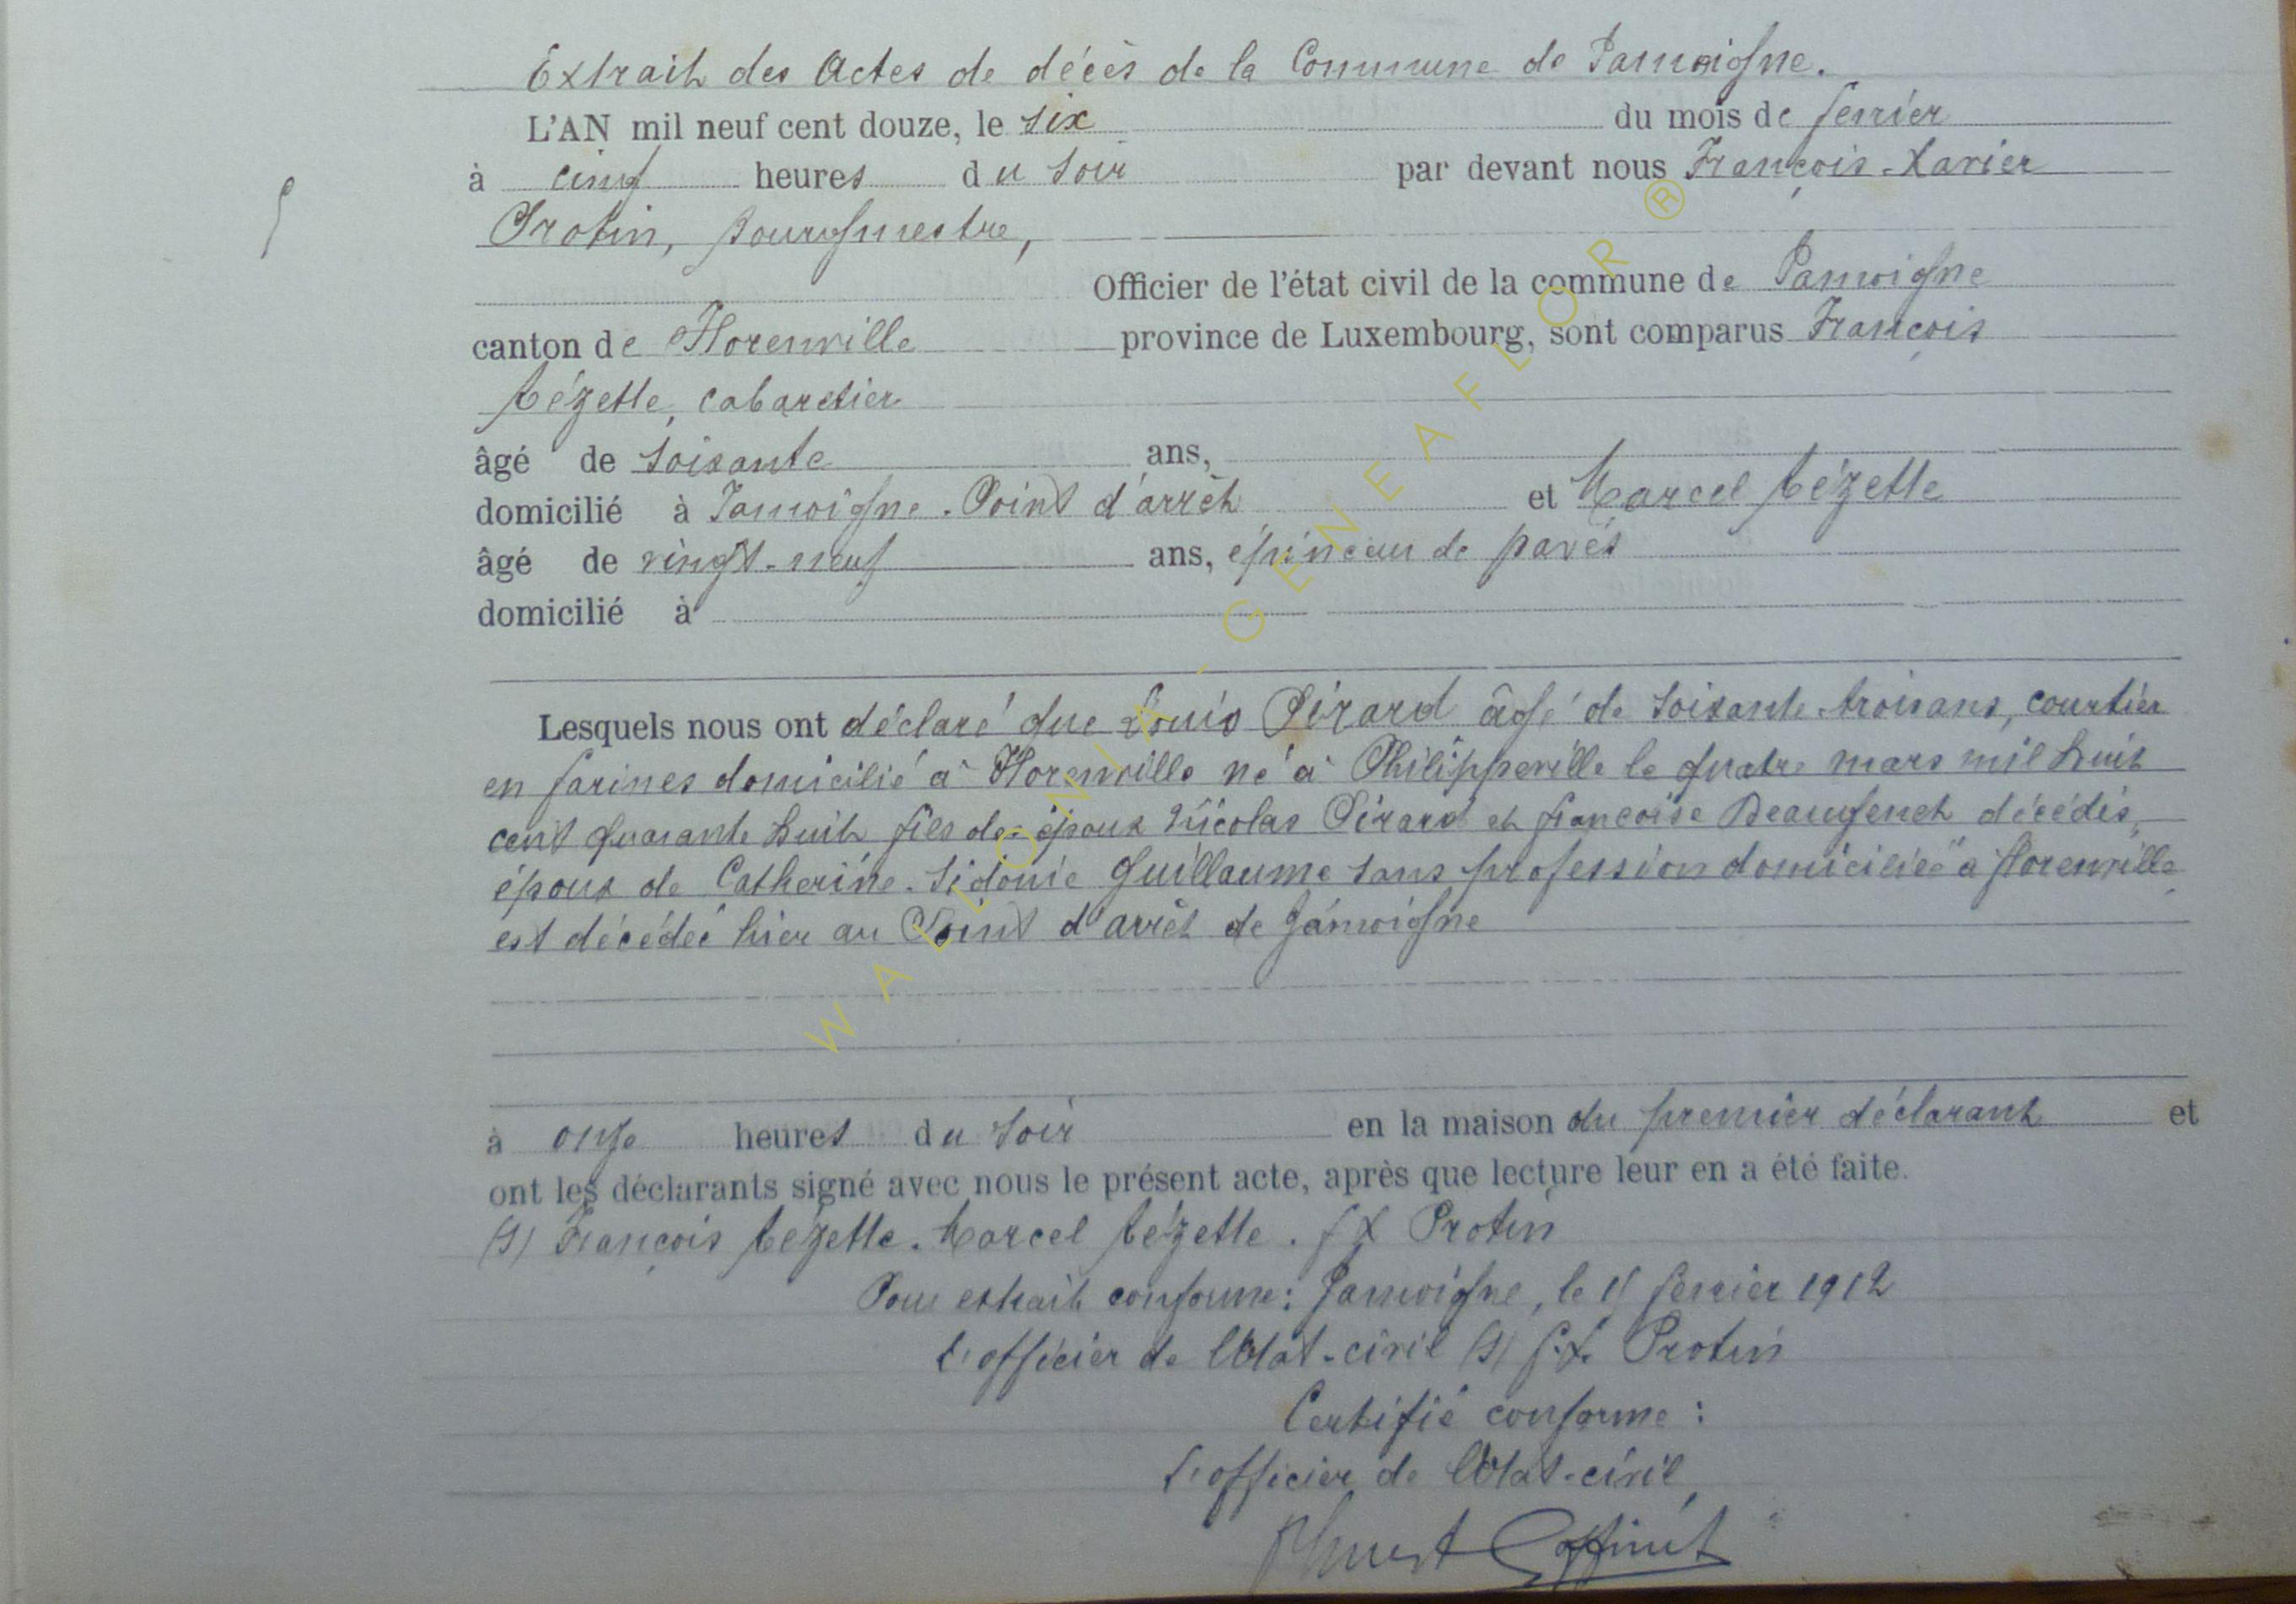 Extrait des Actes de décès de la Commune de Jamoigne.
L'AN mil neuf cent douze, le six du mois de fevrier
à cinq heures du soir par devant nous François-Xavier
Protin, bourgmestre,
Officier de l'état civil de la commune de Jamoigne
canton de Florenville province de Luxembourg, sont comparus François
Lézette, cabaretier
âgé de soixante ans,
domicilié à Jamoigne. Point d'arrêt et Marcel Lézette
âgé de vingt-neuf ans, épinceur de pavés
domicilié à
Lesquels nous ont déclaré que Louis Pirard âgé de soixante trois ans, courtier
en farines domicilié à Florenville né à Philippeville le quatre mars mil huit
cent quarante huit fils des époux Nicolas Pirard et françoise décédés,
époux de Catherine-Sidonie Guillaume sans profession domiciliée à florenville
est décédé hier au Point d'arrêt de Jamoigne
à onze heures du soir en la maison du premier déclarant et
ont les déclarants signé avec nous le présent acte, après que lecture leur en a été faite.
(s) François Lézette. Marcel Lézette. f X Protin
Pour extrait conforme: Jamoigne, le fevrier 1912
L'officier de l'Etat-civil (s) f.X. Protin
Certifié conforme:
L'officier de l'Etat-civil,
WALLONIA-GENEAFLOR ®